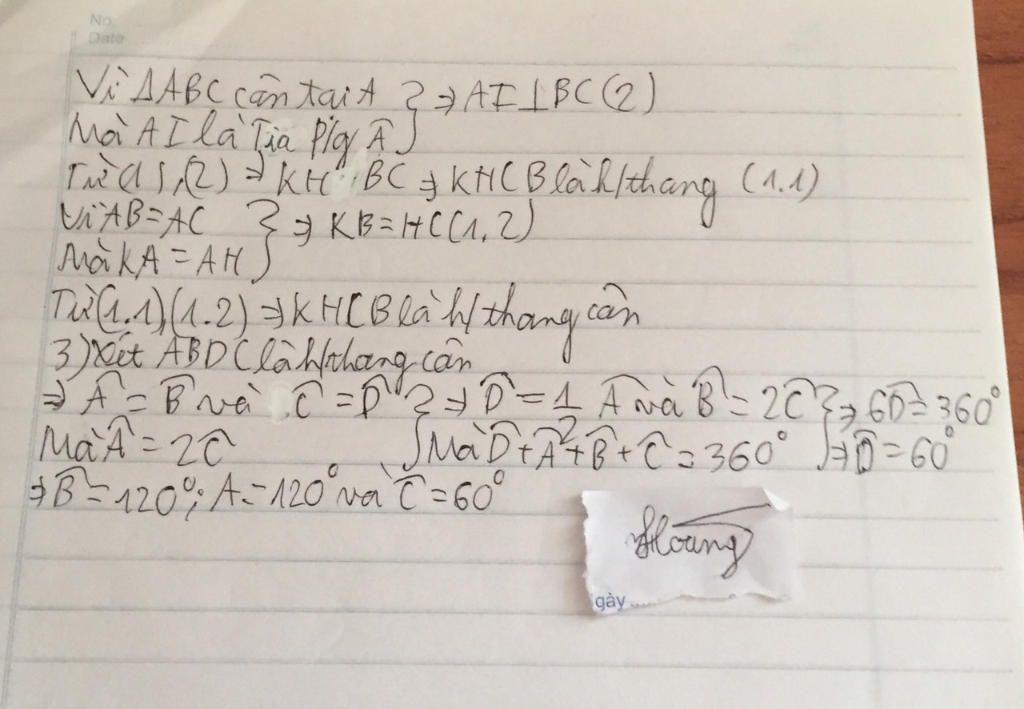 No.
Date
Vì ΔABC cân tại A } ⇒ AI⊥BC (2)
Mà AI là Tia p/g Â
Từ (1), (2) ⇒ KH BC ⇒ KHCB là h/thang (1.1)
Vì AB=AC } ⇒ KB=HC (1,2)
Mà KA = AH
Từ (1.1), (1.2) ⇒ KHCB là h/thang cân
3) Xét ABDC là h/thang cân
⇒ Â = B̂ và Ĉ = D̂ } ⇒ D̂ = 1/2 Â và B̂ = 2Ĉ } ⇒ 6D̂ = 360°
Mà Â = 2Ĉ Mà D̂ + Â + B̂ + Ĉ = 360° ⇒ D̂ = 60°
⇒ B̂ = 120°; A = 120° và Ĉ = 60°
Hoang
gày